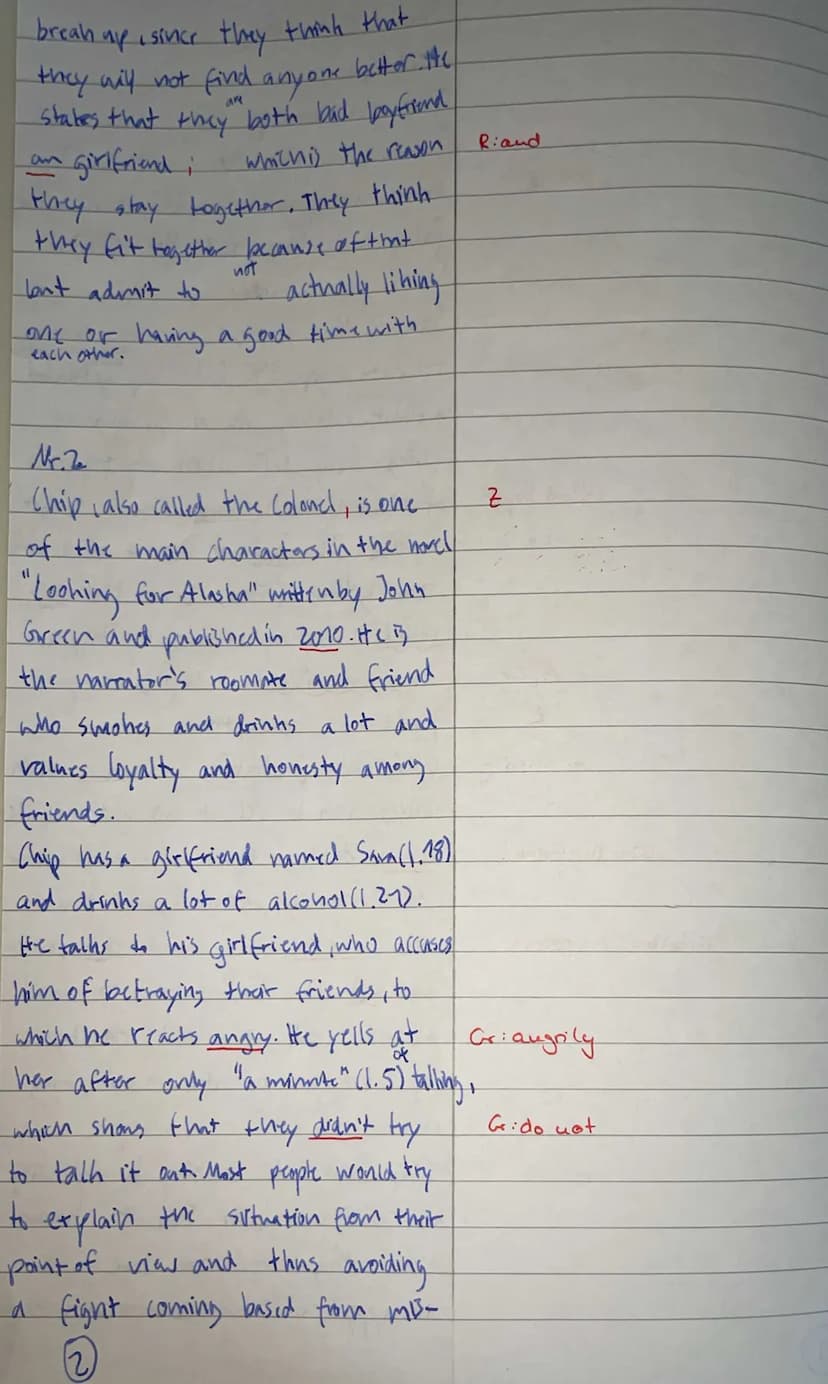 break up, since they think that
they will not find anyone better. He
states that they are both bad boyfriend
an girlfriend, which is the reason R: and
they stay together. They think
they fit together because of that
but admit to not actually liking
one or having a good time with
each other.
Nr. 2
Chip, also called the Colonel, is one Z
of the main characters in the novel
"Looking for Alaska" written by John
Green and published in 2010. He is
the narrator's roomate and friend
who smokes and drinks a lot and
values loyalty and honesty among
friends.
Chip has a girlfriend named Sara (l. 18)
and drinks a lot of alcohol (l. 27).
He talks to his girlfriend, who accuses
him of betraying their friends, to
which he reacts angry. He yells at Gr: angrily
her after only "a minute" (l. 5) of talking,
which shows that they didn't try Gr: do not
to talk it out. Most people would try
to explain the situation from their
point of view and thus avoiding
a fight coming based from mis-
2